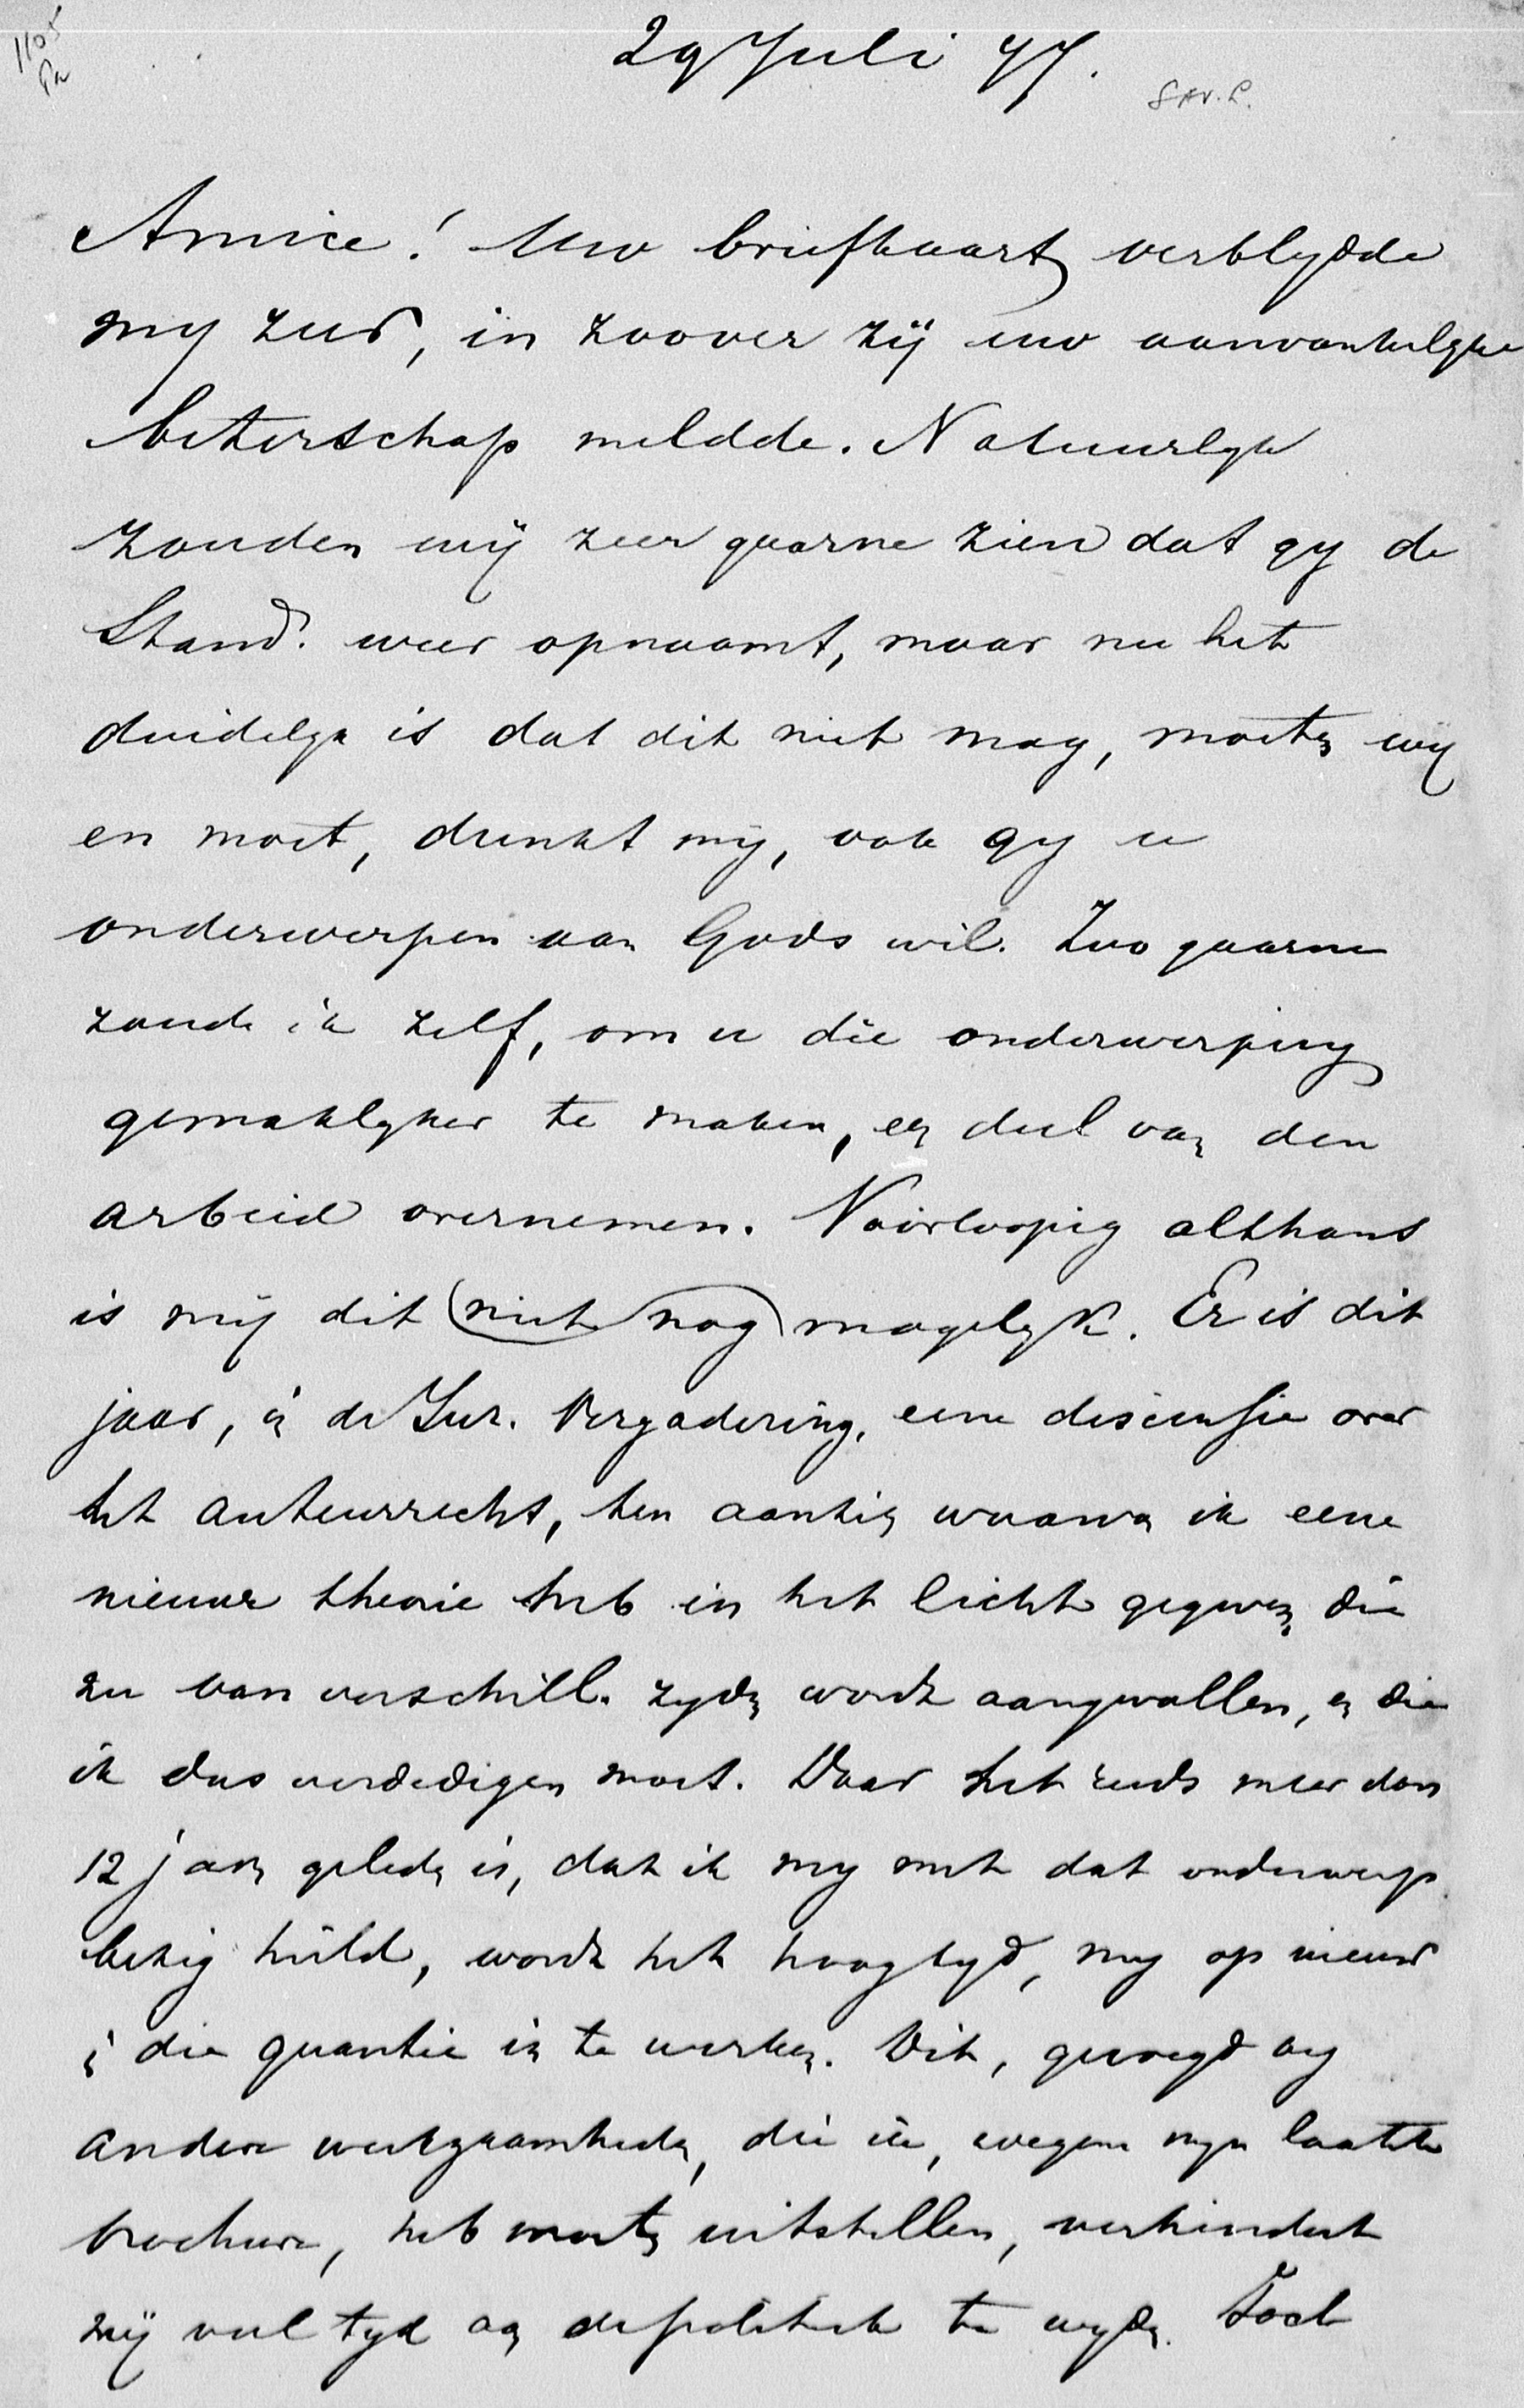 1105
29 Juli 77.
S Av. L.
Amice! Uw briefkaart verblydde
my zeer, in zoover zij uw aanvankelyke
beterschap meldde. Natuurlyk
zouden wij zeer gaarne zien dat gy de
Stand. weer opnaamt, maar nu het
duidelyk is dat dit niet mag, moeten wij
en moet, dunkt mij, ook gy u
onderwerpen aan Gods wil. Zoo gaarne
zoude ik zelf, om u die onderwerping
gemaklyker te maken, een deel van den
arbeid overnemen. Voorloopig althans
is mij dit niet nog mogelyk. Er is dit
jaar, in de Jur. Vergadering, eene discussie over
het auteursrecht, ten aanzien waarvan ik eene
nieuwe theorie heb in het licht gegeven, die
nu van verschill. zyden wordt aangevallen, en die
ik dus verdedigen moet. Daar het reeds meer dan
12 jaren geleden is, dat ik my met dat onderwerp
bezig hield, wordt het hoog tyd, my op nieuw
in die quaestie in te werken. Dit, gevoegd by
andere werkzaamheden, die ik, wegens myn laatste
brochure, heb moeten uitstellen, verhindert
mij veel tyd aan de politiek te wyden. Toch